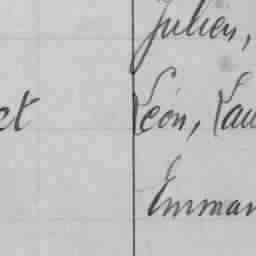 Julien,
et Léon, Lau
Emman